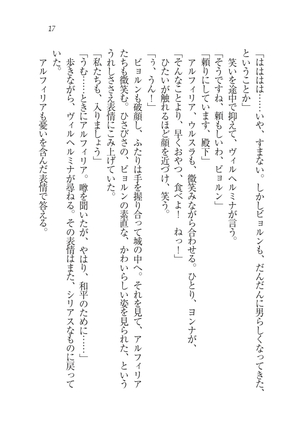 27
「はははは……いや、すまない。しかしビョルンも、だんだんに男らしくなってきた、
ということか」
笑いを途中で抑えて、ヴィルヘルミナが言う。
「そうですね、頼もしいわ、ビョルン」
「頼りにしています、殿下」
アルフィリア、ウルスラも、微笑みながら合わせる。ひとり、ヨンナが、
「そんなことより、早くおやつ、食べよ！　ねっ！」
ひたいが触れるほど顔を近づけ、笑う。
「う、うん！」
ビョルンも破顔し、ふたりは手を握り合って城の中へ。それを見て、アルフィリア
たちも微笑む。ひさびさの、ビョルンの素直な、かわいらしい姿を見られた、という
うれしささえ表情にこみ上げていた。
「私たちも、入りましょう」
「うむ……ときにアルフィリア。噂を聞いたが、やはり、和平のために……」
歩きながら、ヴィルヘルミナが尋ねる。その表情はまた、シリアスなものに戻って
いた。
アルフィリアも憂いを含んだ表情で答える。